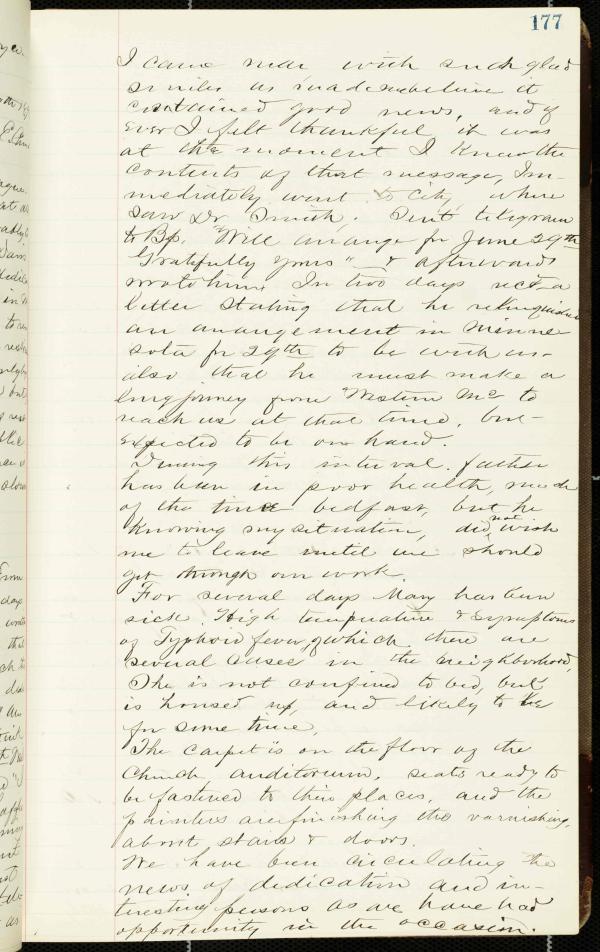 177
I came near with such glad
smiles as made me believe it
contained good news, and if
ever I felt thankful it was
at the moment I knew the
contents of that message, Im-
mediately went to City, where
saw Dr. Smith. Sent telegram
to Bp. "Will arrange for June 29th
Gratefully yours" & afterwards
wrote him. In two days rec'd a
letter stating that he relinquished
an arrangement in Minne
sota for 29th to be with us-
also that he must make a
long journey from Western Mc to
reach us at that time, but-
expected to be on hand.
During this interval father
has been in poor health, much
of the time bedfast, but he
knowing my situation, did not wish
me to leave until we should
get through our work.
For several days Mary has been
sick. High temperature & symptoms
of Typhoid fever, of which there are
several cases in the neighborhood.
She is not confined to bed, but
is housed up, and likely to be
for some time.
The carpet is on the floor of the
Church auditorium, seats ready to
be fastened to their places, and the
painters are finishing the varnishing,
about stairs & doors.
We have been circulating the
news of dedication and in-
teresting persons as we have had
opportunity in the occasion.